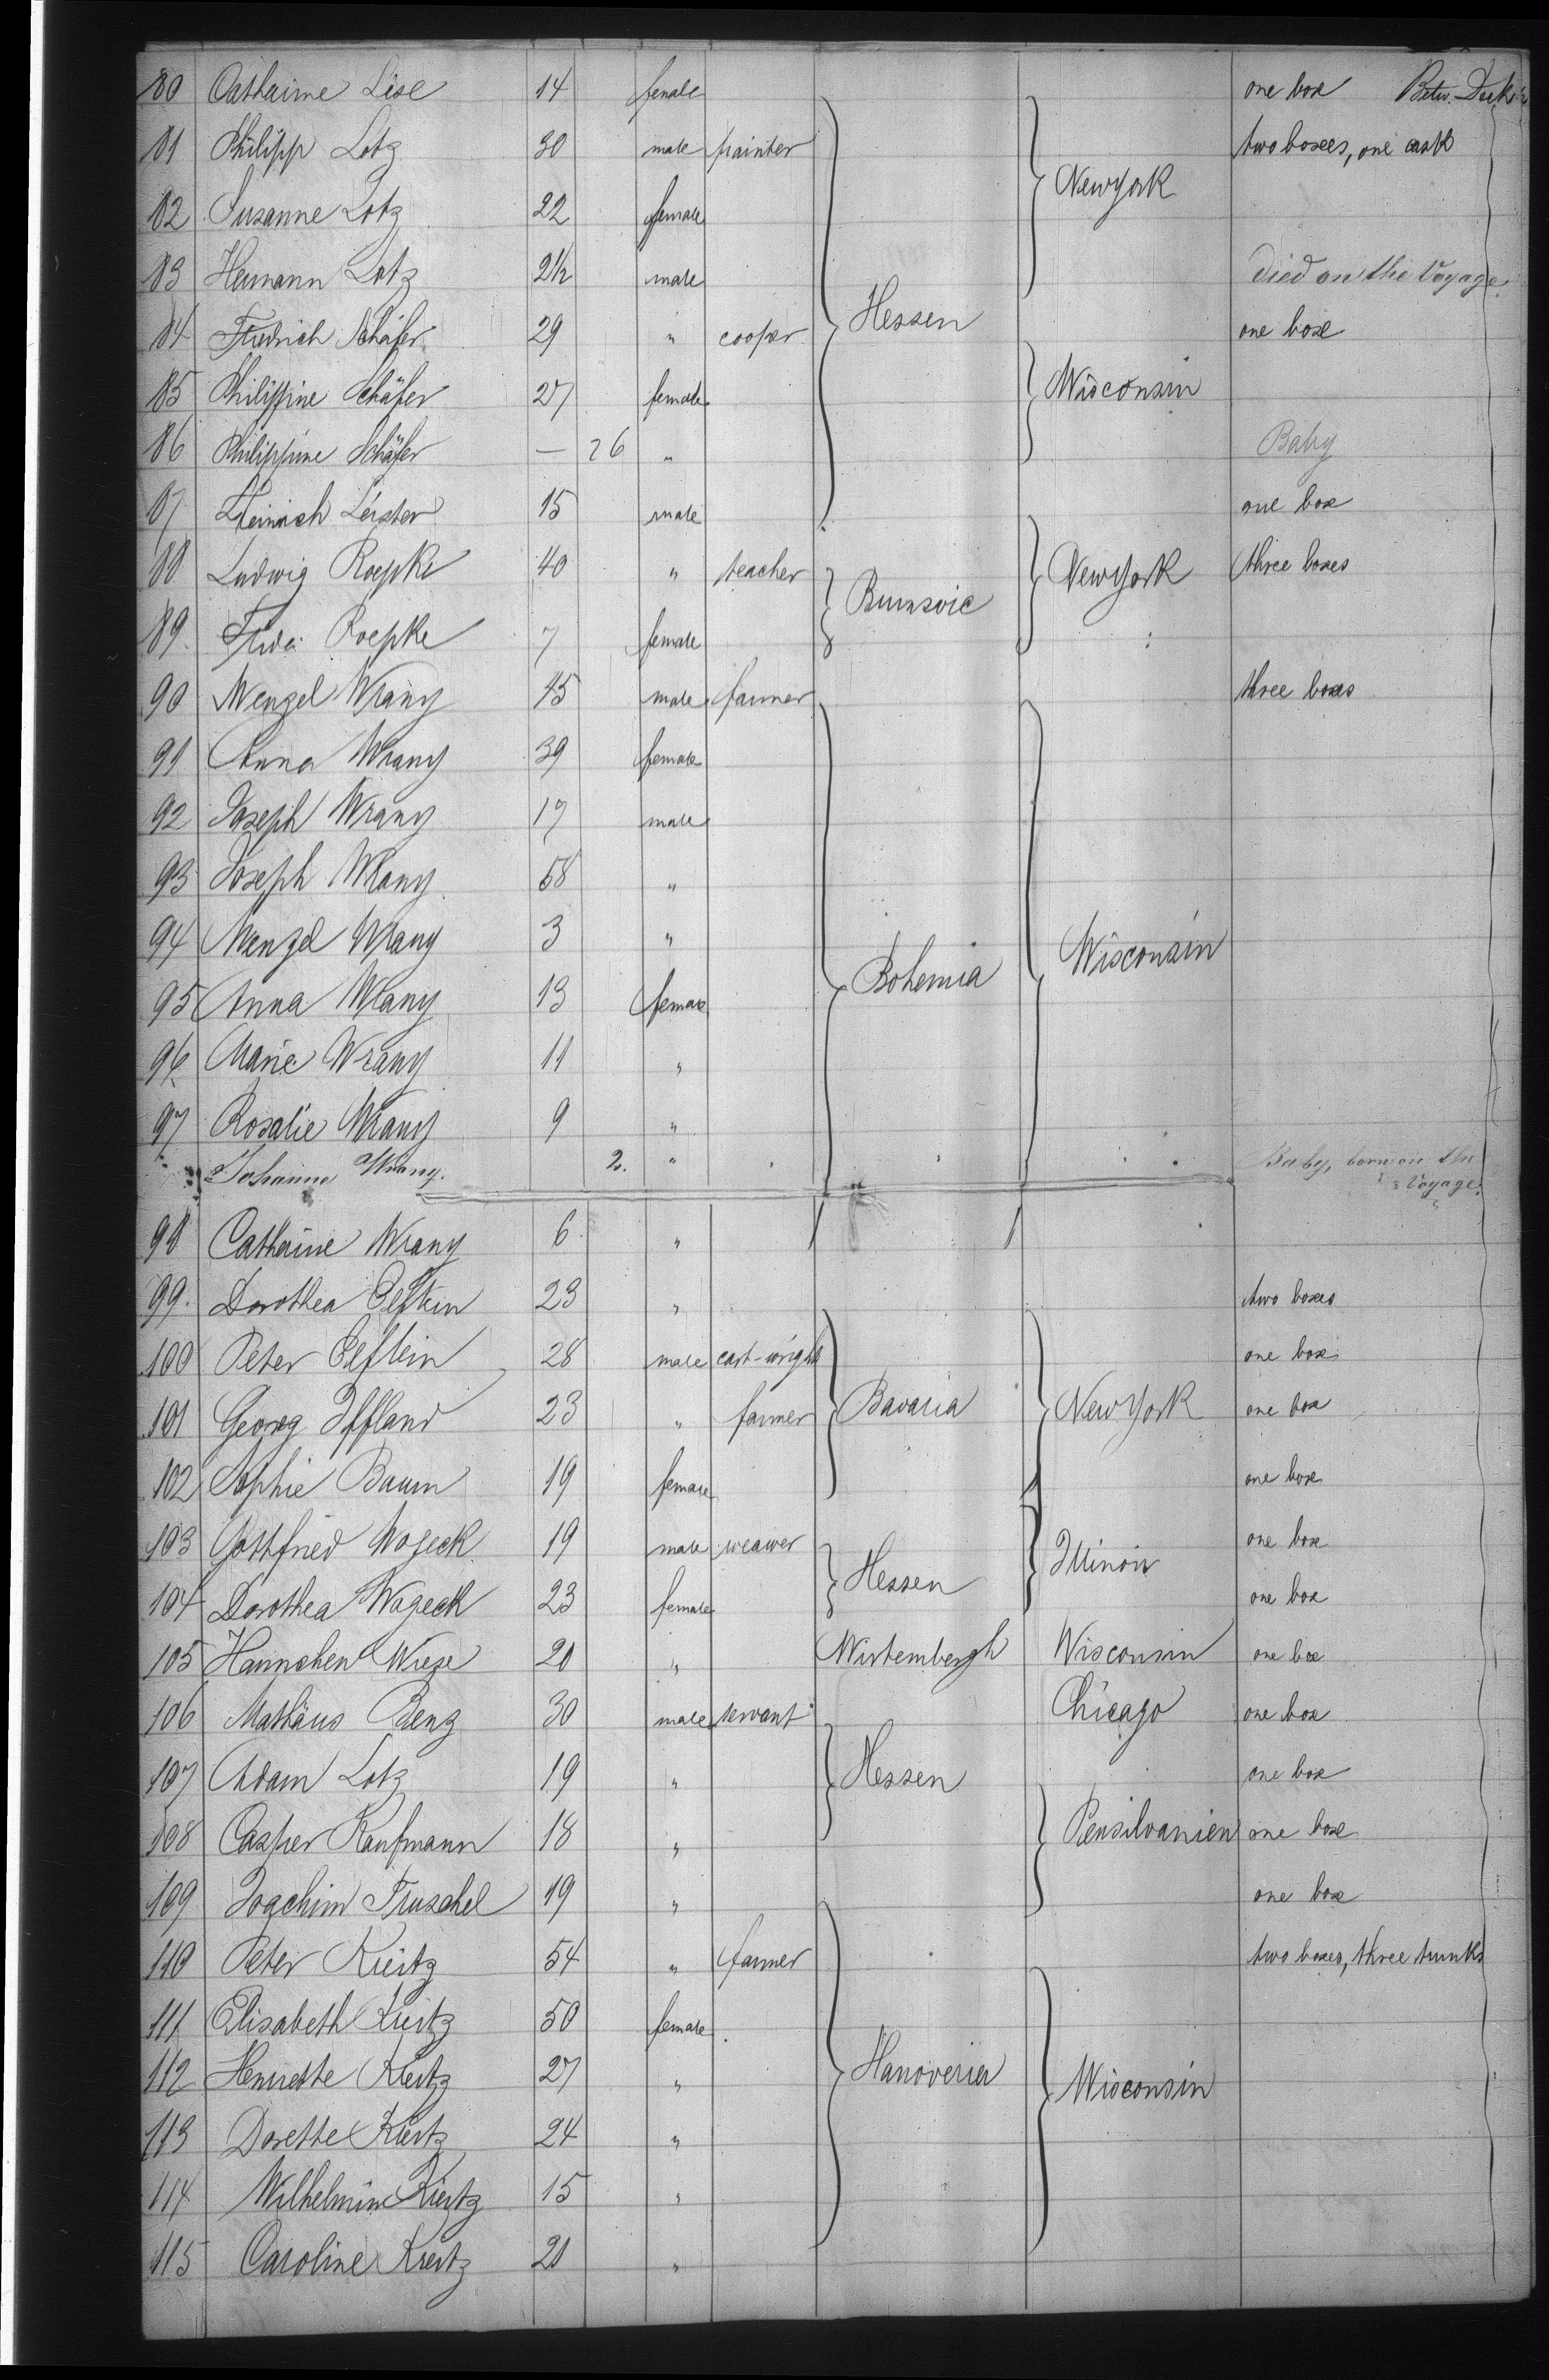 80 Cathaime Lise 14 female one box Betw. Decks
81 Philipp Lotz 30 male painter two boxes, one cask
NewYork
82 Susanne Lotz 22 female
83 Hermann Lotz 2½ male Died on the Voyage.
Hessen
84 Friedrich Schäfer 29 " cooper one box
85 Philippine Schäfer 27 female Wisconsin
86 Philippine Schäfer — 26 " Baby
87 Heinrich Leister 15 male one box
88 Ludwig Roepke 40 " teacher NewYork three boxes
Brunsvic
89. Frida Roepke 7 female
90 Wenzel Wrany 45 male farmer three boxes
91 Anna Wrany 39 female
92 Joseph Wrany 17 male
93 Joseph Wrany 58 "
94 Wenzel Wrany 3 " Wisconsin
Bohemia
95 Anna Wrany 13 female
96 Marie Wrany 11 "
97 Rosalie Wrany 9 "
Johanna Wrany. 2. " Baby, born on the Voyage.
98 Catharine Wrany 6 "
99. Dorothea 23 " two boxes
100 Peter 28 male cart-wright one box
101 Georg Iffland 23 " farmer Bavaria NewYork one box
102 Sophie Baum 19 female one box
103 Gottfried Wozeck 19 male weawer one box
Hessen Illinois
104 Dorothea Wozeck 23 female one box
105 Hannchen Wiese 20 " Wirtembergh Wisconsin one box
106 Mathäus Benz 30 male servant Chicago one box
107 Adam Lotz 19 " Hessen one box
108 Casper Kaufmann 18 " Pensilvanien one box
109 Joachim Truschel 19 " one box
110 Peter Kiertz 54 " farmer two boxes, three trunks
111 Elisabeth Kiertz 50 female
112 Henrette Kiertz 27 " Hanoveria Wisconsin
113 Dorette Kiertz 24 "
114 Wilhelmine Kiertz 15 "
115 Caroline Kiertz 20 "